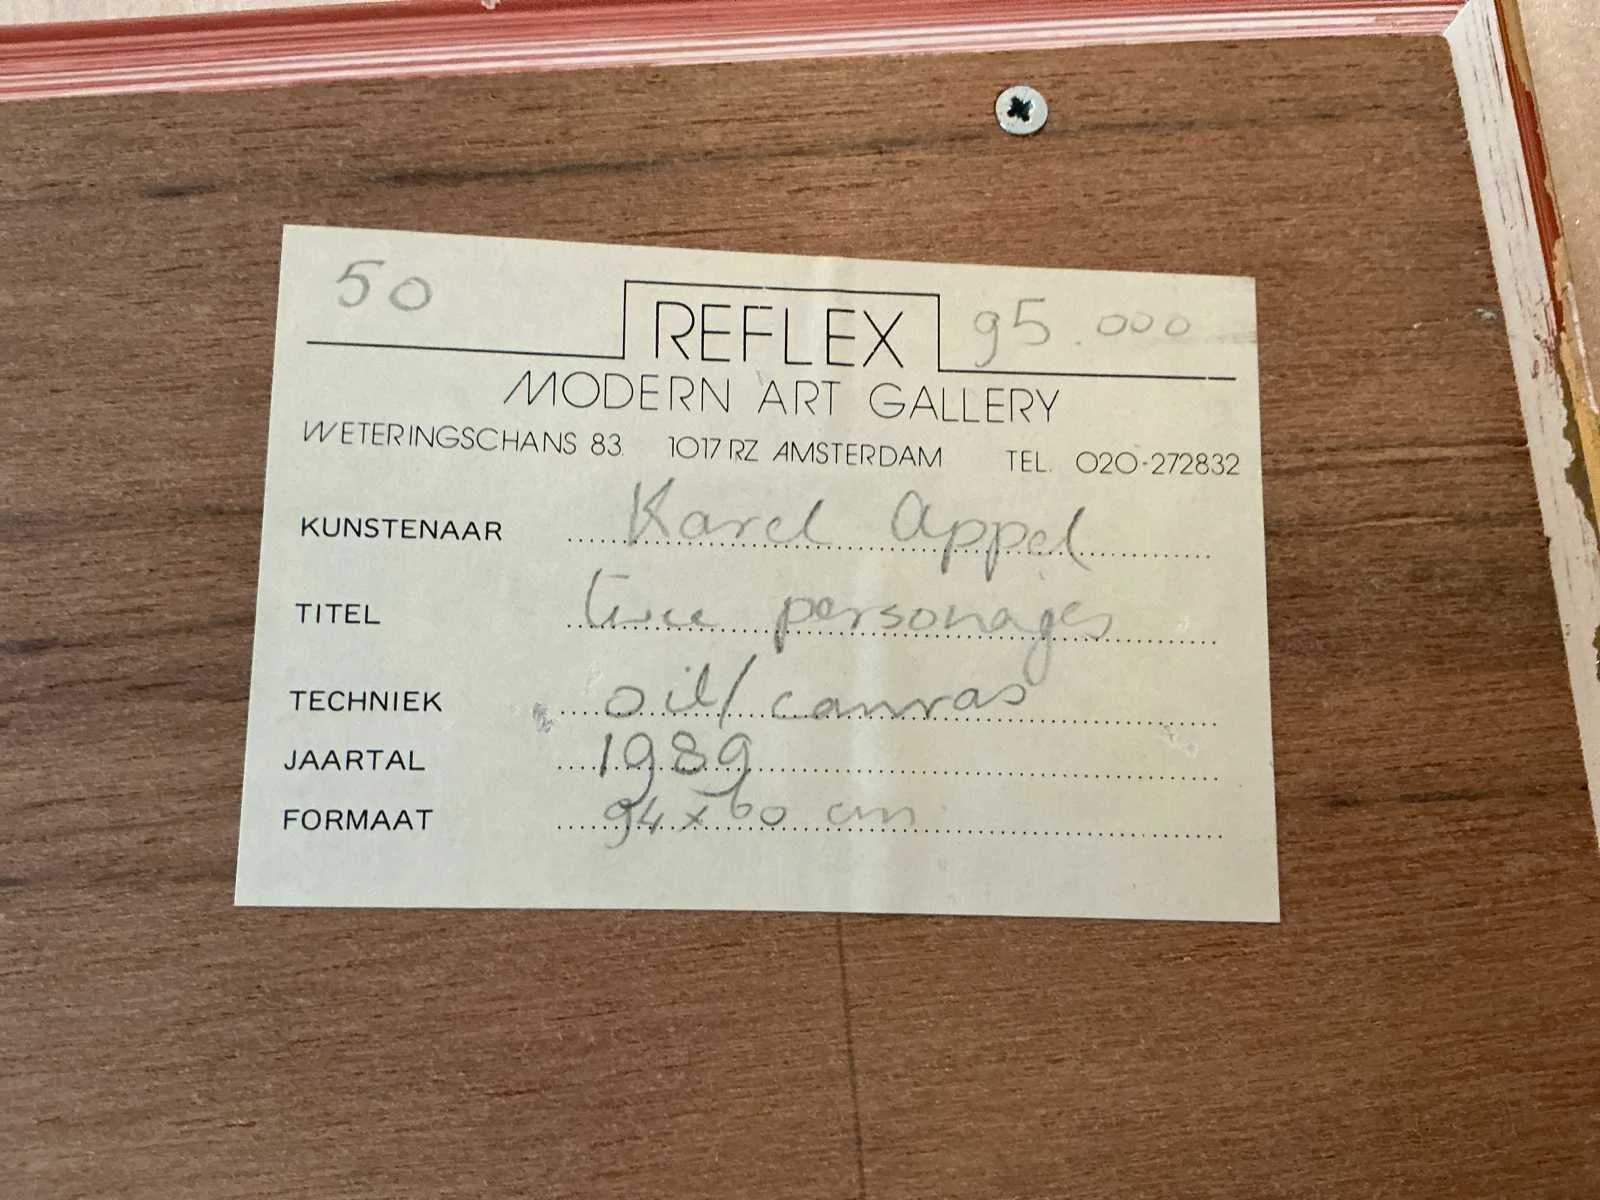 50 REFLEX 95.000
MODERN ART GALLERY
WETERINGSCHANS 83 1017 RZ AMSTERDAM TEL. 020-272832
KUNSTENAAR Karel Appel
TITEL twee personages
TECHNIEK oil/canvas
JAARTAL 1989
FORMAAT 94 x 60 cm